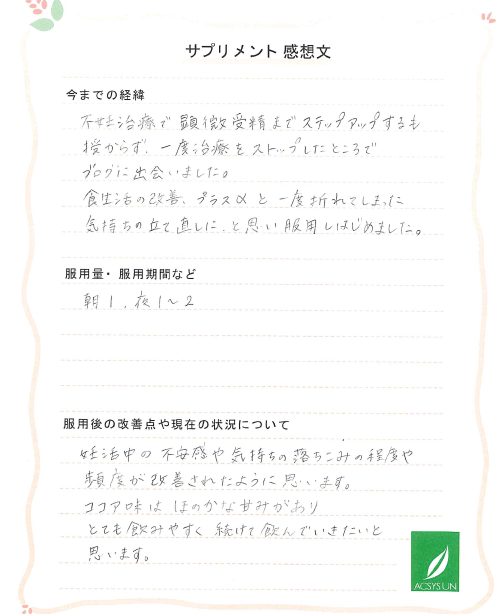 サプリメント 感想文
今までの経緯
不妊治療で顕微受精までステップアップするも
授からず、一度治療をストップしたところで
ブログに出会いました。
食生活の改善、プラスα と 一度折れてしまった
気持ちの立て直しに、と思い服用しはじめました。
服用量・服用期間など
朝1、夜1～2
服用後の改善点や現在の状況について
妊活中の不安感や気持ちの落ちこみの程度や
頻度が改善されたように思います。
ココア味は ほのかな甘みがあり
とても飲みやすく 続けて飲んでいきたいと
思います。
ACSYSUN